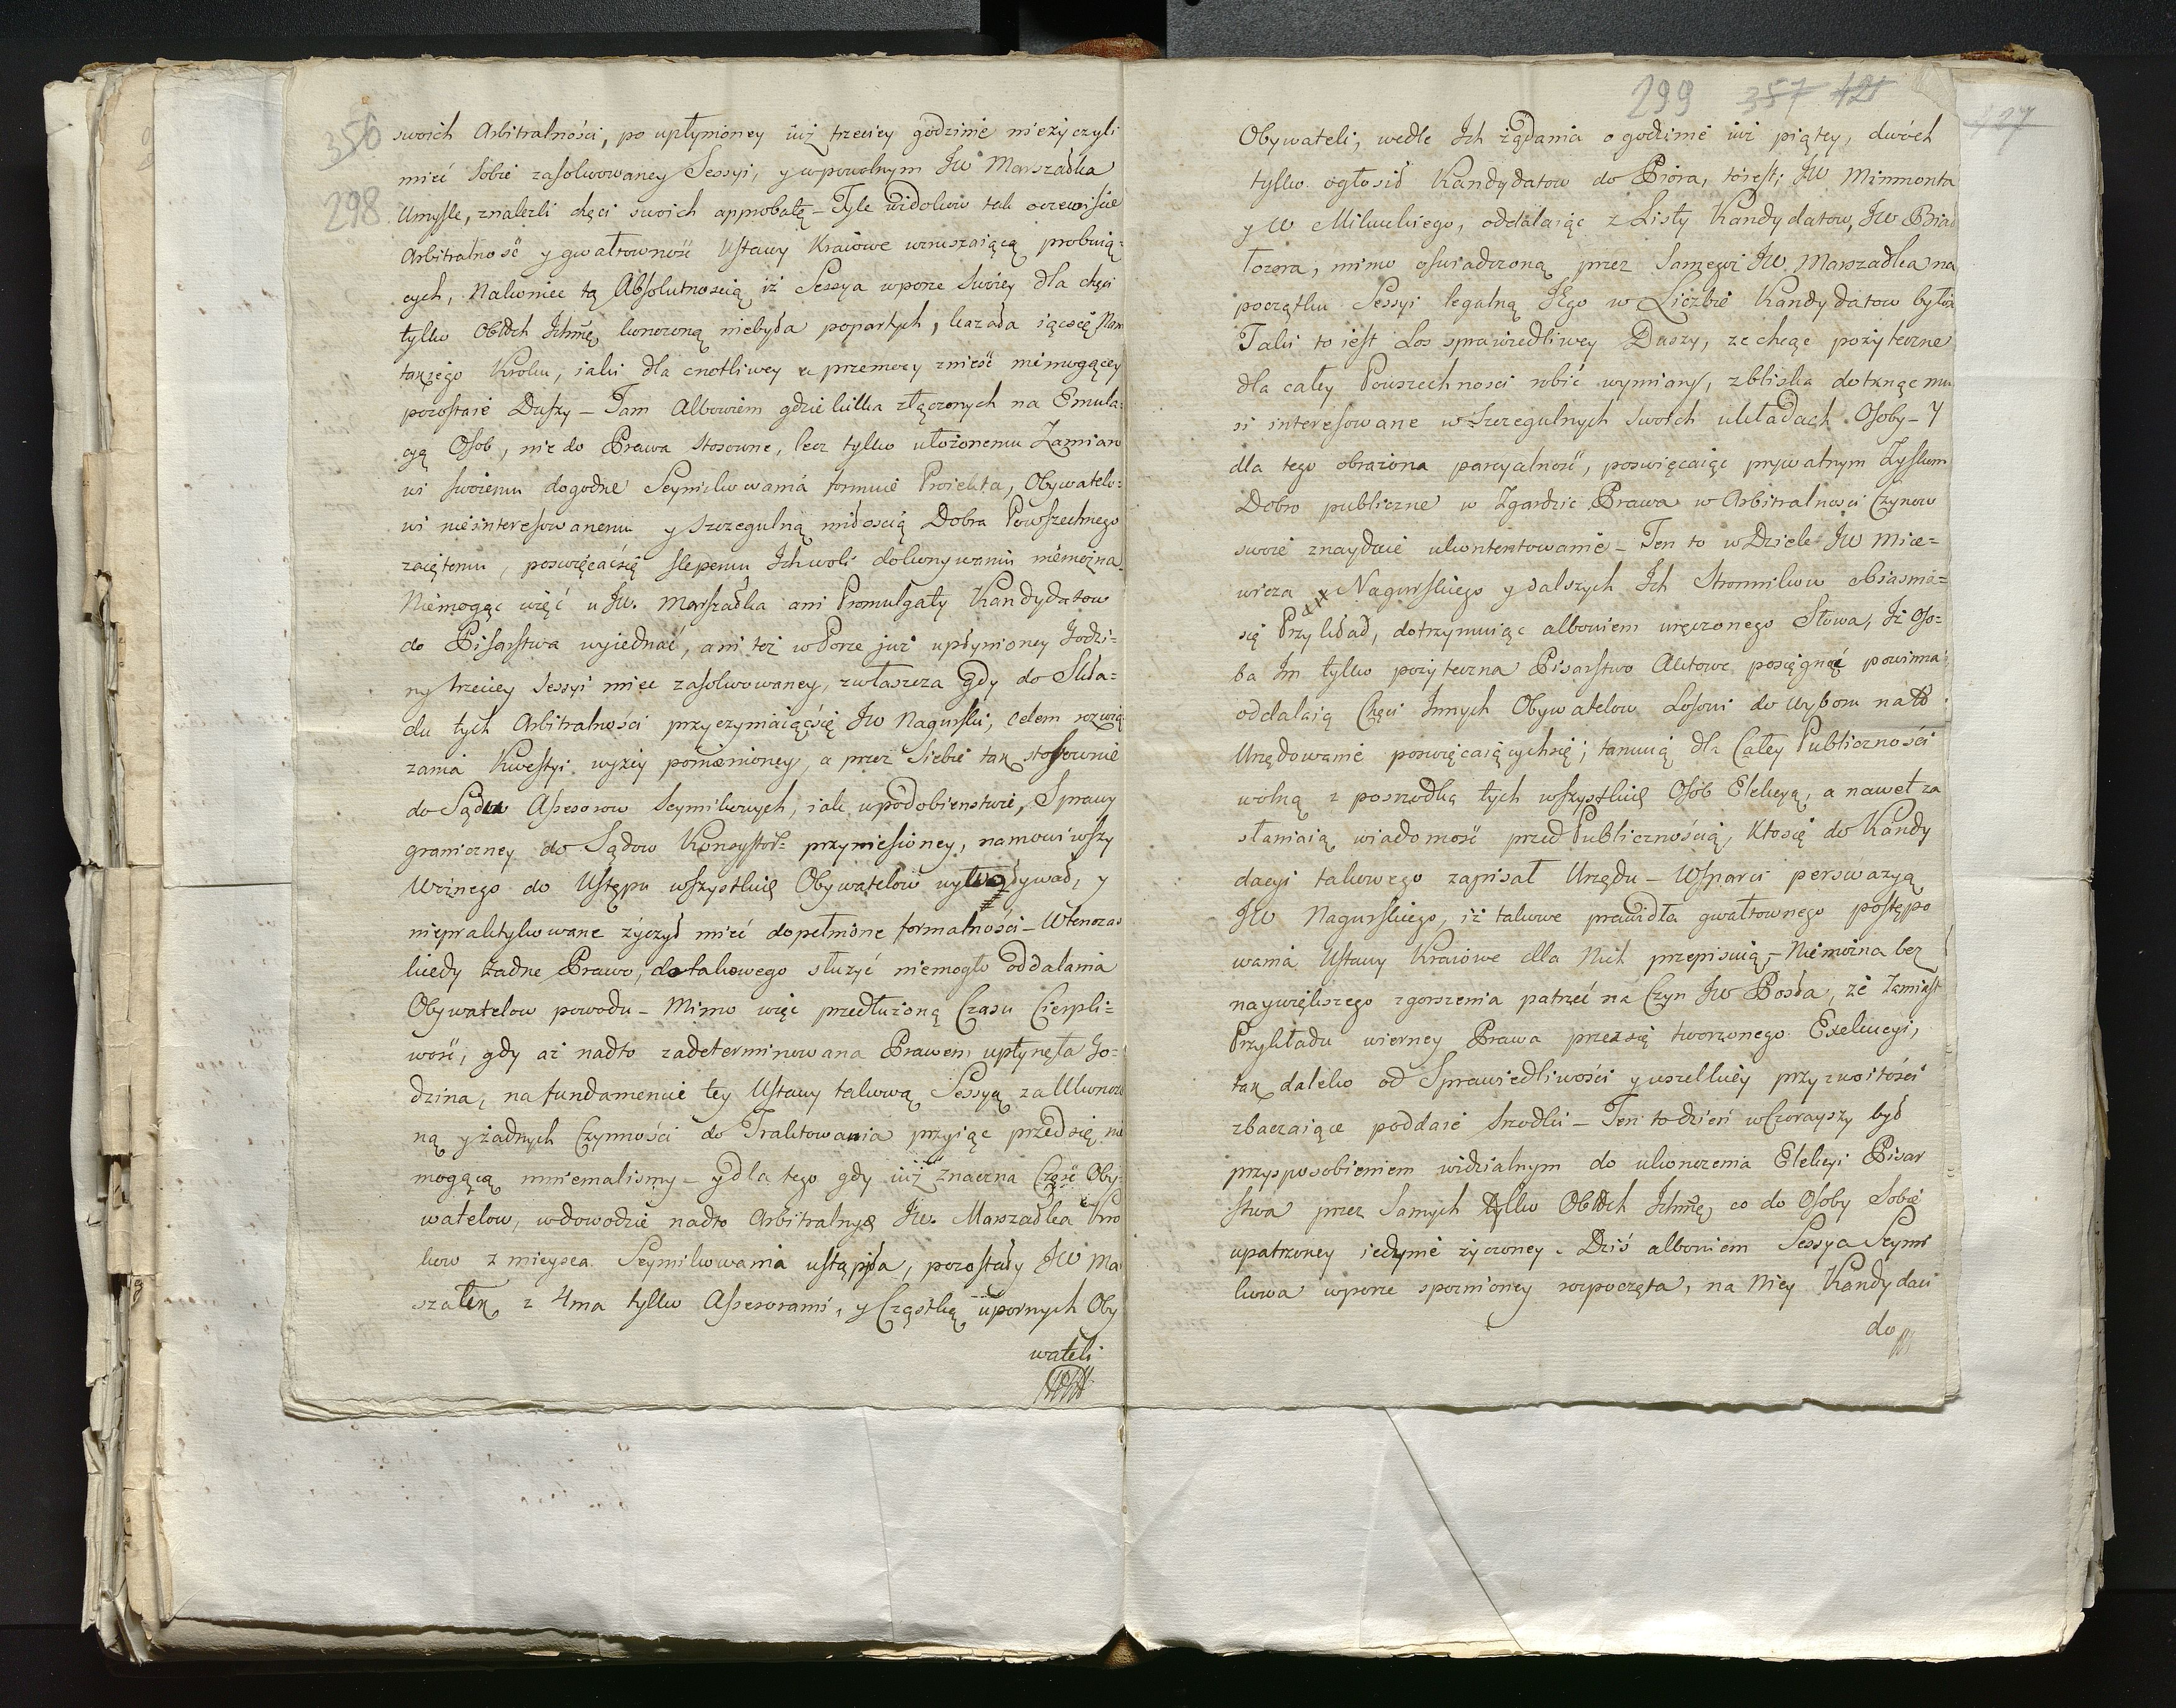 356
298
swoich Arbitralności, po upłynioney iuż trzeciey godzinie nieżyczyli
mieć sobie zasolwowaney Sessyi, y wpowolnym JW Marszałka
Umyśle, znalezli chęci swoich approbatę – Tyle widokow tak oczewiście
Arbitralność y gwałtowność Ustawy Kraiowe wzruszaiącą probuią-
cych, Nakoniec tą Absolutnoscią iż Sessya w porze swoiey dla chęci
tylko Obżch Ichmę konczoną niebyła popartych, kazała iąć się Nam
takiego Kroku, iaki dla cnotliwey a przemocy znieść niemogącey
pozostaie Duszy – Tam Albowiem gdzie kilka złączonych na Emula-
cyą Osob, nie do Prawa stosowne, lecz tylko ułożonemu Zamiaro
wi swoiemu dogodne Seymikowania formuie Proiekta, Obywatelo-
wi nieinteresowanemu y szczegulną miłoscią Dobra Powszechnego
zaiętemu, poswięcać się slepemu Ich woli dokonywaniu niemożna.
Niemogąc więc u JW. Marszałka ani Promulgaty Kandydatow
do Pisarstwa wyiednać, ani też w Porze już upłynioney Godzi-
ny trzeciey Sessyi miec zasolwowaney, zwłaszcza gdy do Skła-
du tych Arbitralności przyczyniaiącsię JW Nagurski, celem rozwią
zania Kwestyi wyżey pomienioney, a przez siebie tak stosownie
do Sądu Assessorow Seymikowych, iak w podobienstwie, Sprawy
graniczney do Sądow Konsystor= przyniesioney, namowiwszy
Woznego do Ustępu wszystkich Obywatelow wywoływał, y
niepraktykowane życzył mieć dopełnione formalności – Wtenczas
kiedy żadne Prawo, do takowego służyć niemogło oddalania
Obywatelow powodu – Mimo więc przedłużoną Czasu Cierpli-
wość, gdy aż nadto zadeterminowana Prawem upłynęła Go-
dzina, na fundamencie tey Ustawy takową Sessyą za Ukonczo
ną y żadnych Czynności do Traktowania przyiąc przedsię nie
mogącą mniemalismy – y dla tego gdy iuż znaczna Częsc Oby-
watelow, w dowodzie nadto Arbitralnych JW. Marszałka Kro
kow z mieysca Seymikowania ustąpiła, pozostały JW Mar
szałek z 4ma tylko Assesorami, y Cząstką upornych Oby
wateli
299 357 421
427
Obywateli, wedle Ich żądania o godzinie iuż piątey, dwóch
tylko ogłosił Kandydatow do Piora, toiest; JW Minmonta
y W Milwickiego, oddalaiąc z Listy Kandydatow, JW Biał
łozora, mimo oswiadczoną przez Samegoż JW. Marszałka na
początku Sessyi legalną Jego w Liczbie Kandydatow bytn
Taki to iest Los sprawiedliwey Duszy, ze chcąc pożyteczne
dla całey Powszechnosci robić wymiany, zbliska dotknąc mu
si interesowane w szczegulnych swoich układach Osoby – Y
dla tego obrażona parcyalność, poswięcaiąc prywatnym Zyskom
Dobro publiczne w Zgardzie Prawa w Arbitralnosci Czynow
swoie znayduie ukontentowanie – Ten to w Dziele JW Mice-
wicza Nagurskiego y dalszych Ich Stronnikow obiasnia-
się Przykład, dotrzymuiąc albowiem uręczonego Słowa, Iż Oso-
ba Im tylko pożyteczna Pisarstwo Aktowe posięgnąć powinna
oddalaią Chęci Innych Obywatelow Losowi do wyboru na to
Urzędowanie poswięcaiącychsię; tamuią dla Całey Publiczności
wolną z posrzodka tych wszystkich Osób Elekcyą, a nawet za
słaniaią wiadomość przed Publicznością, Ktosię do Kandy
dacyi takowego zapisał Urzędu – Wsparci perswazyą
JW Nagurskiego, iż takowe prawidła gwałtownego postępo
wania Ustawy Kraiowe dla Nich przepisuią – Niemożna bez
naywiększego zgorszenia patrzeć na Czyn JW Posła, że Zamiast
Przykładu wierney Prawa przezsię tworzonego Exekucyi,
tak daleko od Sprawiedliwości y wszelkiey przyzwoitości
zbaczaiące poddaie srzodki – Ten to dzień wczorayszy był
przysposobieniem widzialnym do ukonczenia Elekcyi Pisar
stwa przez Samych tylko Obżch Ichmę, co do Osoby sobie
upatrzoney iedynie życzoney. Dziś albowiem Sessya Seymi
kowa w porze spoznioney rozpoczęta, na Niey Kandydaci
do